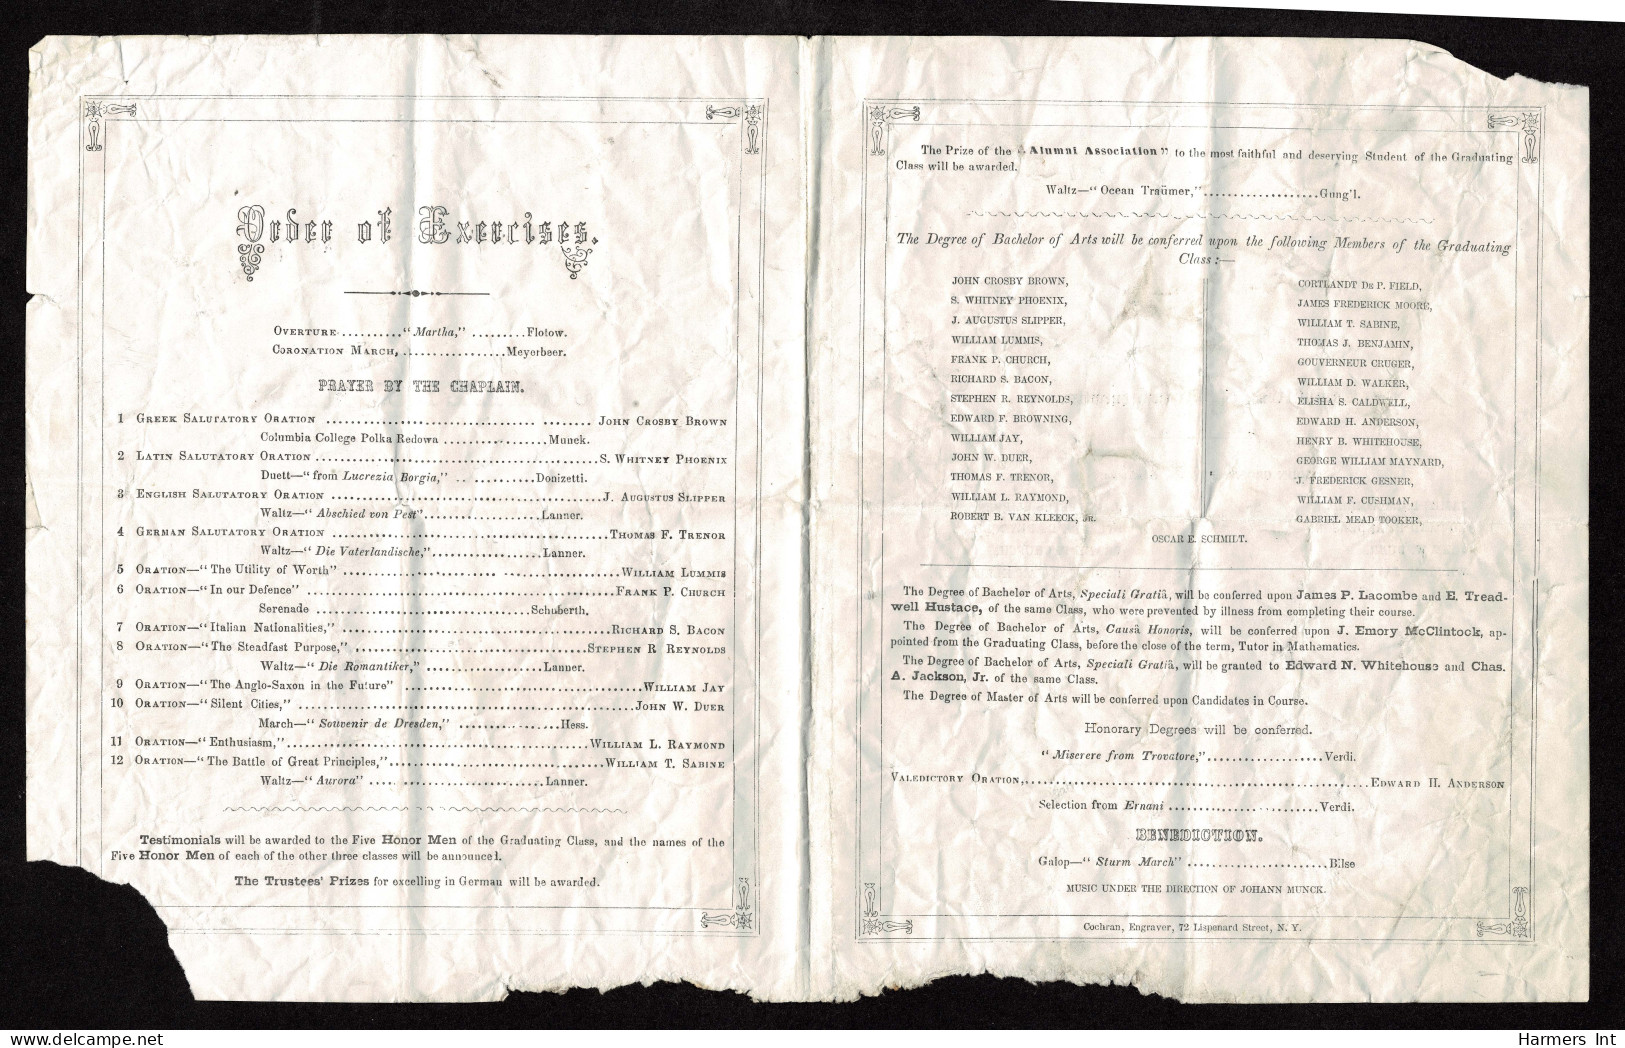 Order of Exercises.
OVERTURE .......... "Martha," ......... Flotow.
CORONATION MARCH, ................. Meyerbeer.
PRAYER BY THE CHAPLAIN.
1 GREEK SALUTATORY ORATION ........................................ JOHN CROSBY BROWN
Columbia College Polka Redowa .................. Munck.
2 LATIN SALUTATORY ORATION ........................................ S. WHITNEY PHOENIX
Duett—"from Lucrezia Borgia," .. .......... Donizetti.
3 ENGLISH SALUTATORY ORATION ........................................ J. AUGUSTUS SLIPPER
Waltz—"Abschied von Pest" .................... Lanner.
4 GERMAN SALUTATORY ORATION ........................................ THOMAS F. TRENOR
Waltz—"Die Vaterlandische," .................. Lanner.
5 ORATION—"The Utility of Worth" ........................................ WILLIAM LUMMIS
6 ORATION—"In our Defence" ........................................ FRANK P. CHURCH
Serenade .................................... Schuberth.
7 ORATION—"Italian Nationalities," ........................................ RICHARD S. BACON
8 ORATION—"The Steadfast Purpose," ........................................ STEPHEN R REYNOLDS
Waltz—"Die Romantiker," .................... Lanner.
9 ORATION—"The Anglo-Saxon in the Future" ........................................ WILLIAM JAY
10 ORATION—"Silent Cities," ........................................ JOHN W. DUER
March—"Souvenir de Dresden," ................. Hess.
11 ORATION—"Enthusiasm," ........................................ WILLIAM L. RAYMOND
12 ORATION—"The Battle of Great Principles," ........................................ WILLIAM T. SABINE
Waltz—"Aurora" .............................. Lanner.
Testimonials will be awarded to the Five Honor Men of the Graduating Class, and the names of the
Five Honor Men of each of the other three classes will be announced.
The Trustees' Prizes for excelling in German will be awarded.
The Prize of the "Alumni Association" to the most faithful and deserving Student of the Graduating
Class will be awarded.
Waltz—"Ocean Traümer," ................... Gung'l.
The Degree of Bachelor of Arts will be conferred upon the following Members of the Graduating
Class:—
JOHN CROSBY BROWN,
S. WHITNEY PHOENIX,
J. AUGUSTUS SLIPPER,
WILLIAM LUMMIS,
FRANK P. CHURCH,
RICHARD S. BACON,
STEPHEN R. REYNOLDS,
EDWARD F. BROWNING,
WILLIAM JAY,
JOHN W. DUER,
THOMAS F. TRENOR,
WILLIAM L. RAYMOND,
ROBERT B. VAN KLEECK, JR.
CORTLANDT DE P. FIELD,
JAMES FREDERICK MOORE,
WILLIAM T. SABINE,
THOMAS J. BENJAMIN,
GOUVERNEUR CRUGER,
WILLIAM D. WALKER,
ELISHA S. CALDWELL,
EDWARD H. ANDERSON,
HENRY B. WHITEHOUSE,
GEORGE WILLIAM MAYNARD,
J. FREDERICK GESNER,
WILLIAM F. CUSHMAN,
GABRIEL MEAD TOOKER,
OSCAR E. SCHMILT.
The Degree of Bachelor of Arts, Speciali Gratiâ, will be conferred upon James P. Lacombe and E. Tread-
well Hustace, of the same Class, who were prevented by illness from completing their course.
The Degree of Bachelor of Arts, Causâ Honoris, will be conferred upon J. Emory McClintock, ap-
pointed from the Graduating Class, before the close of the term, Tutor in Mathematics.
The Degree of Bachelor of Arts, Speciali Gratiâ, will be granted to Edward N. Whitehouse and Chas.
A. Jackson, Jr. of the same Class.
The Degree of Master of Arts will be conferred upon Candidates in Course.
Honorary Degrees will be conferred.
"Miserere from Trovatore," ................... Verdi.
VALEDICTORY ORATION, ........................................ EDWARD H. ANDERSON
Selection from Ernani ......................... Verdi.
BENEDICTION.
Galop—"Sturm March" ....................... Bilse
MUSIC UNDER THE DIRECTION OF JOHANN MUNCK.
Cochran, Engraver, 72 Lispenard Street, N. Y.
Harmers Int